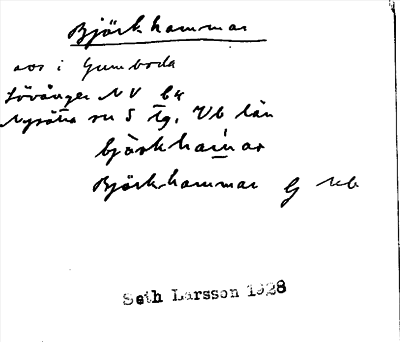 Björkhammar
avs i Gumboda
Lövånger NV bk
Nysätra sn S tg. Vb län
björkhamar
Björkhammar G
Seth Larsson 1928